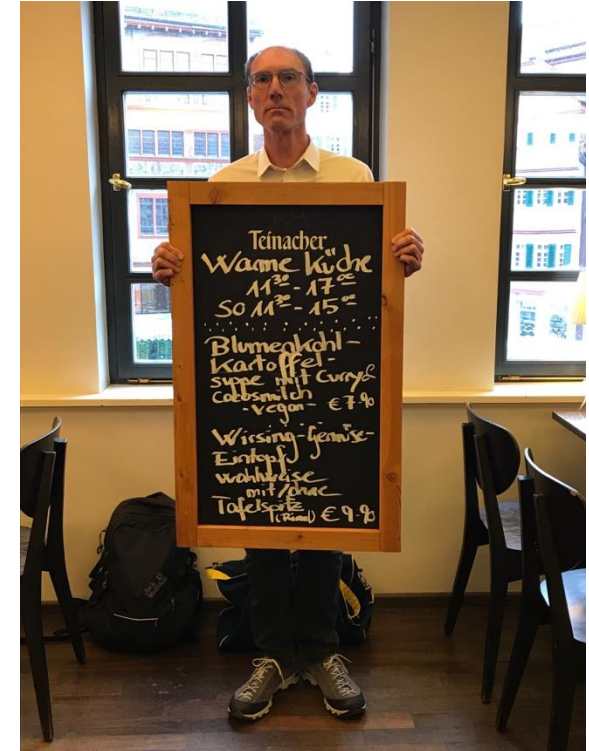 Teinacher
Warme Küche
11³⁰ - 17⁰⁰
SO 11³⁰ - 15⁰⁰
Blumenkohl-
Kartoffel-
suppe mit Curry &
Cocosmilch
- vegan - € 7.90
Wirsing-Gemüse-
Eintopf
wahlweise
mit/ohne
Tafelspitz
(Rind) € 9.90